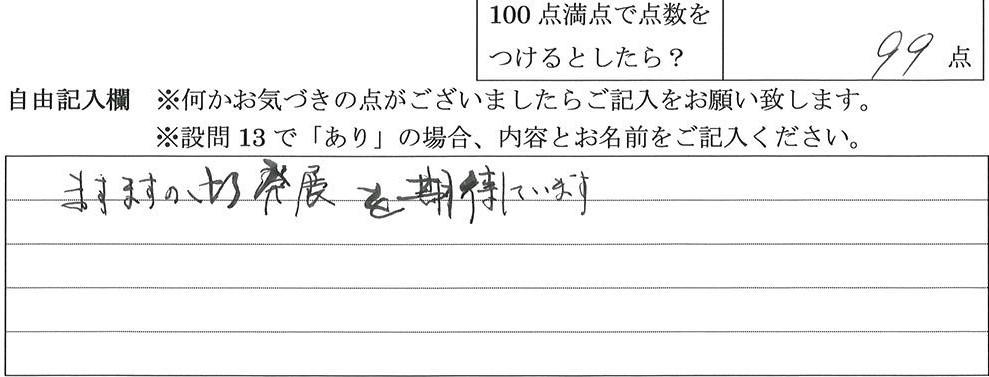 100 点満点で点数を
つけるとしたら？ 99 点
自由記入欄 ※何かお気づきの点がございましたらご記入をお願い致します。
※設問 13 で「あり」の場合、内容とお名前をご記入ください。
ますますの 発展を期待しています